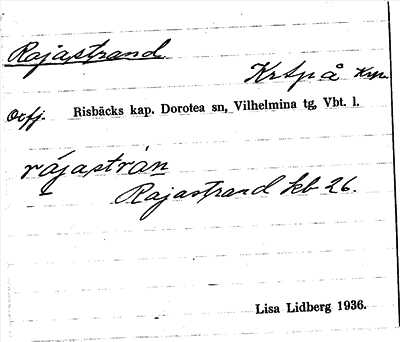 Rajastrand
Krtpå Krp.
Risbäcks kap. Dorotea sn, Vilhelmina tg, Vbt. l.
rájastrán
Rajastrand kb 26.
Lisa Lidberg 1936.